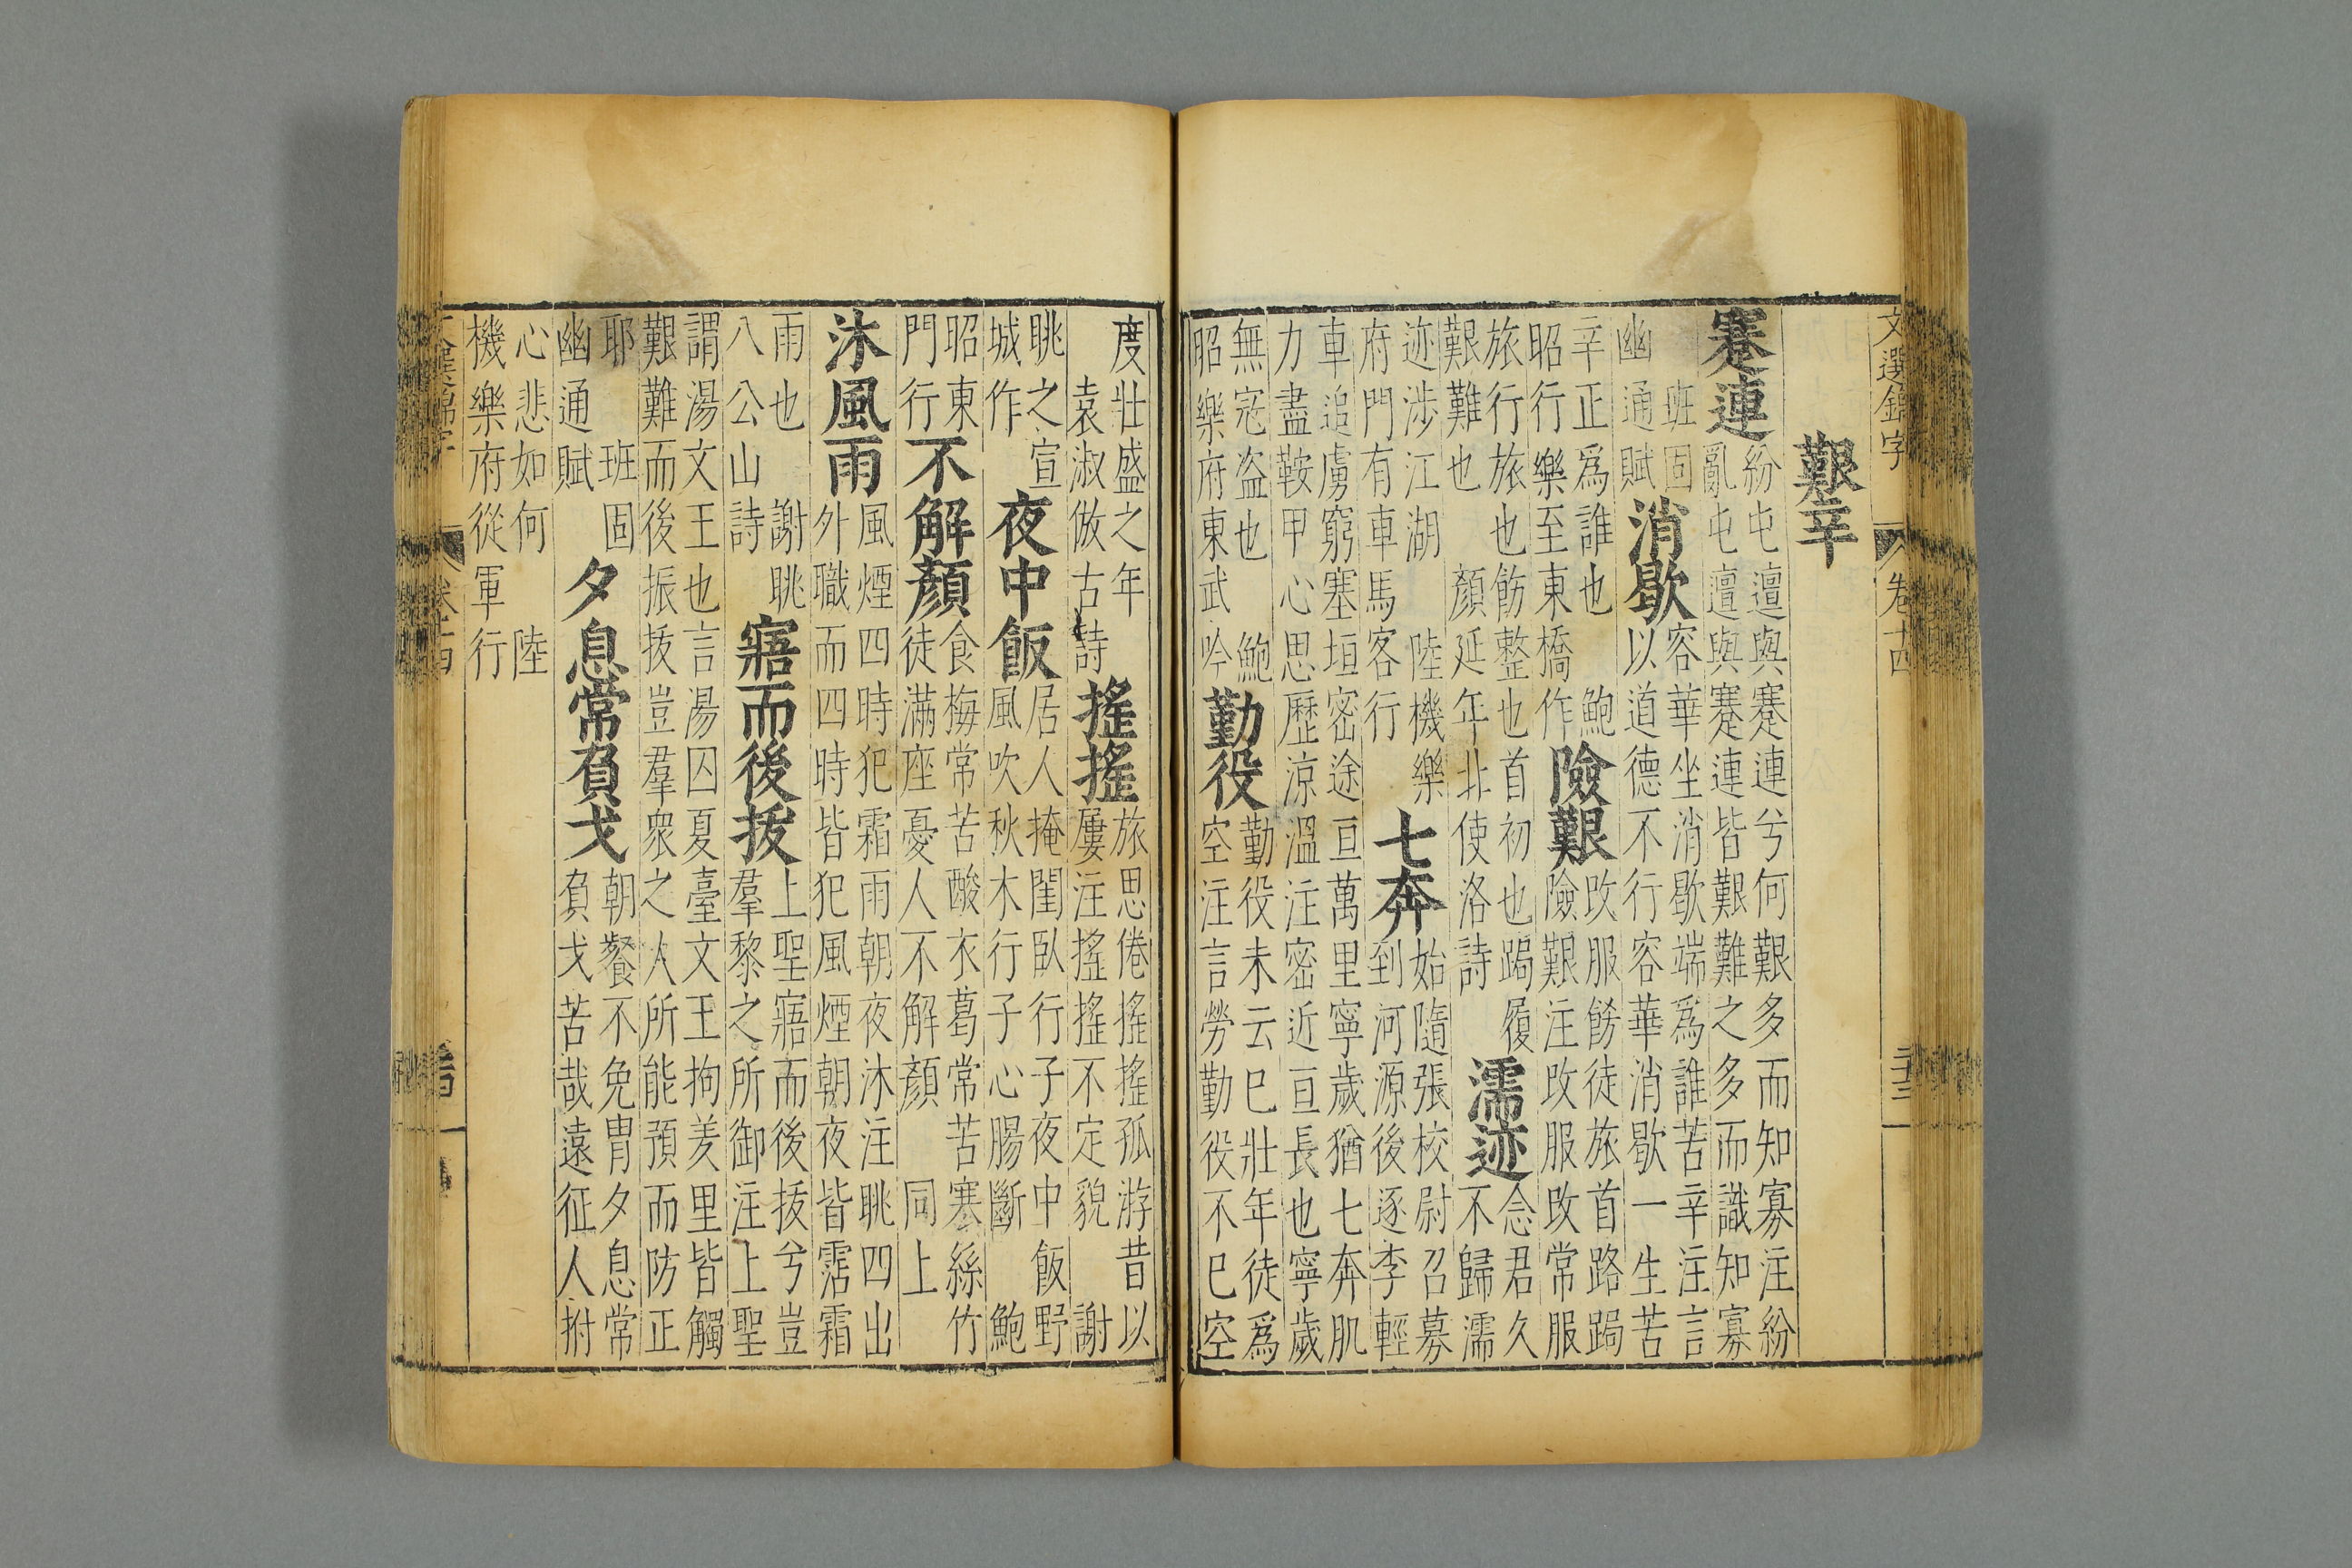 文選錦字 卷十四 二十三
艱辛
蹇連
紛屯邅與蹇連兮何艱多而知寡注紛
亂屯邅與蹇連皆艱難之多而識知寡
班固
幽通賦
消歇
容華坐消歇端爲誰苦辛注言
以道德不行容華消歇一生苦
辛正爲誰也 鮑
昭行樂至東橋作
險艱
改服飭徒旅首路跼
險艱注改服改常服
旅行旅也飭整也首初也跼履
艱難也 顏延年北使洛詩
濡迹
念君久
不歸濡
迹涉江湖 陸機樂
府門有車馬客行
七奔
始隨張校尉召募
到河源後逐李輕
車追虜窮塞垣密途亘萬里寧歲猶七奔肌
力盡鞍甲心思歷涼溫注密近亘長也寧歲
無寇盜也 鮑
昭樂府東武吟
勤役
勤役未云已壯年徒爲
空注言勞勤役不已空
度壯盛之年
袁淑倣古詩
搖搖
旅思倦搖搖孤游昔以
屢注搖搖不定貌 謝
眺之宣
城作
夜中飯
居人掩閨臥行子夜中飯野
風吹秋木行子心腸斷 鮑
昭東
門行
不解顏
食梅常苦酸衣葛常苦寒絲竹
徒滿座憂人不解顏 同上
沐風雨
風煙四時犯霜雨朝夜沐注眺四出
外職而四時皆犯風煙朝夜皆霑霜
雨也 謝眺
八公山詩
寤而後拔
上聖寤而後拔兮豈
羣黎之所御注上聖
謂湯文王也言湯囚夏臺文王拘羑里皆觸
艱難而後振拔豈羣衆之人所能預而防正
耶 班固
幽通賦
夕息常負戈
朝餐不免冑夕息常
負戈苦哉遠征人拊
心悲如何 陸
機樂府從軍行